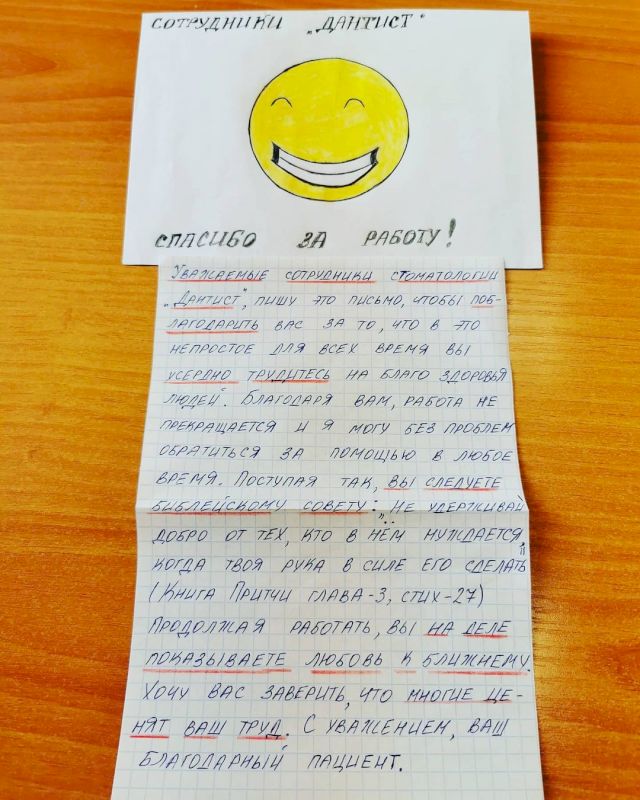 СОТРУДНИКИ „ДАНТИСТ"
СПАСИБО ЗА РАБОТУ!
УВАЖАЕМЫЕ СОТРУДНИКИ СТОМАТОЛОГИИ
„ДАНТИСТ", ПИШУ ЭТО ПИСЬМО, ЧТОБЫ ПОБ-
ЛАГОДАРИТЬ ВАС ЗА ТО, ЧТО В ЭТО
НЕПРОСТОЕ ДЛЯ ВСЕХ ВРЕМЯ ВЫ
УСЕРДНО ТРУДИТЕСЬ НА БЛАГО ЗДОРОВЬЯ
ЛЮДЕЙ. БЛАГОДАРЯ ВАМ, РАБОТА НЕ
ПРЕКРАЩАЕТСЯ И Я МОГУ БЕЗ ПРОБЛЕМ
ОБРАТИТЬСЯ ЗА ПОМОЩЬЮ В ЛЮБОЕ
ВРЕМЯ. ПОСТУПАЯ ТАК, ВЫ СЛЕДУЕТЕ
БИБЛЕЙСКОМУ СОВЕТУ: „НЕ УДЕРЖИВАЙ
ДОБРО ОТ ТЕХ, КТО В НЁМ НУЖДАЕТСЯ,
КОГДА ТВОЯ РУКА В СИЛЕ ЕГО СДЕЛАТЬ"
(КНИГА ПРИТЧИ ГЛАВА-3, СТИХ-27)
ПРОДОЛЖАЯ РАБОТАТЬ, ВЫ НА ДЕЛЕ
ПОКАЗЫВАЕТЕ ЛЮБОВЬ К БЛИЖНЕМУ.
ХОЧУ ВАС ЗАВЕРИТЬ, ЧТО МНОГИЕ ЦЕ-
НЯТ ВАШ ТРУД. С УВАЖЕНИЕМ, ВАШ
БЛАГОДАРНЫЙ ПАЦИЕНТ.